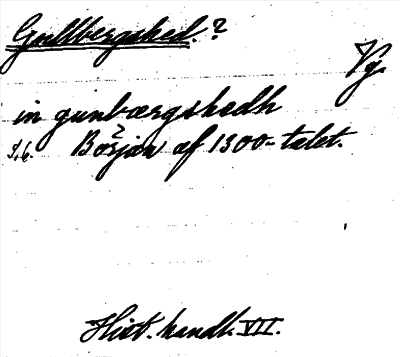 Gullbergshed.?
Vg.
in gunbærgshædh
S. 6. Början af 1300-talet.
Hist. handl. VII.